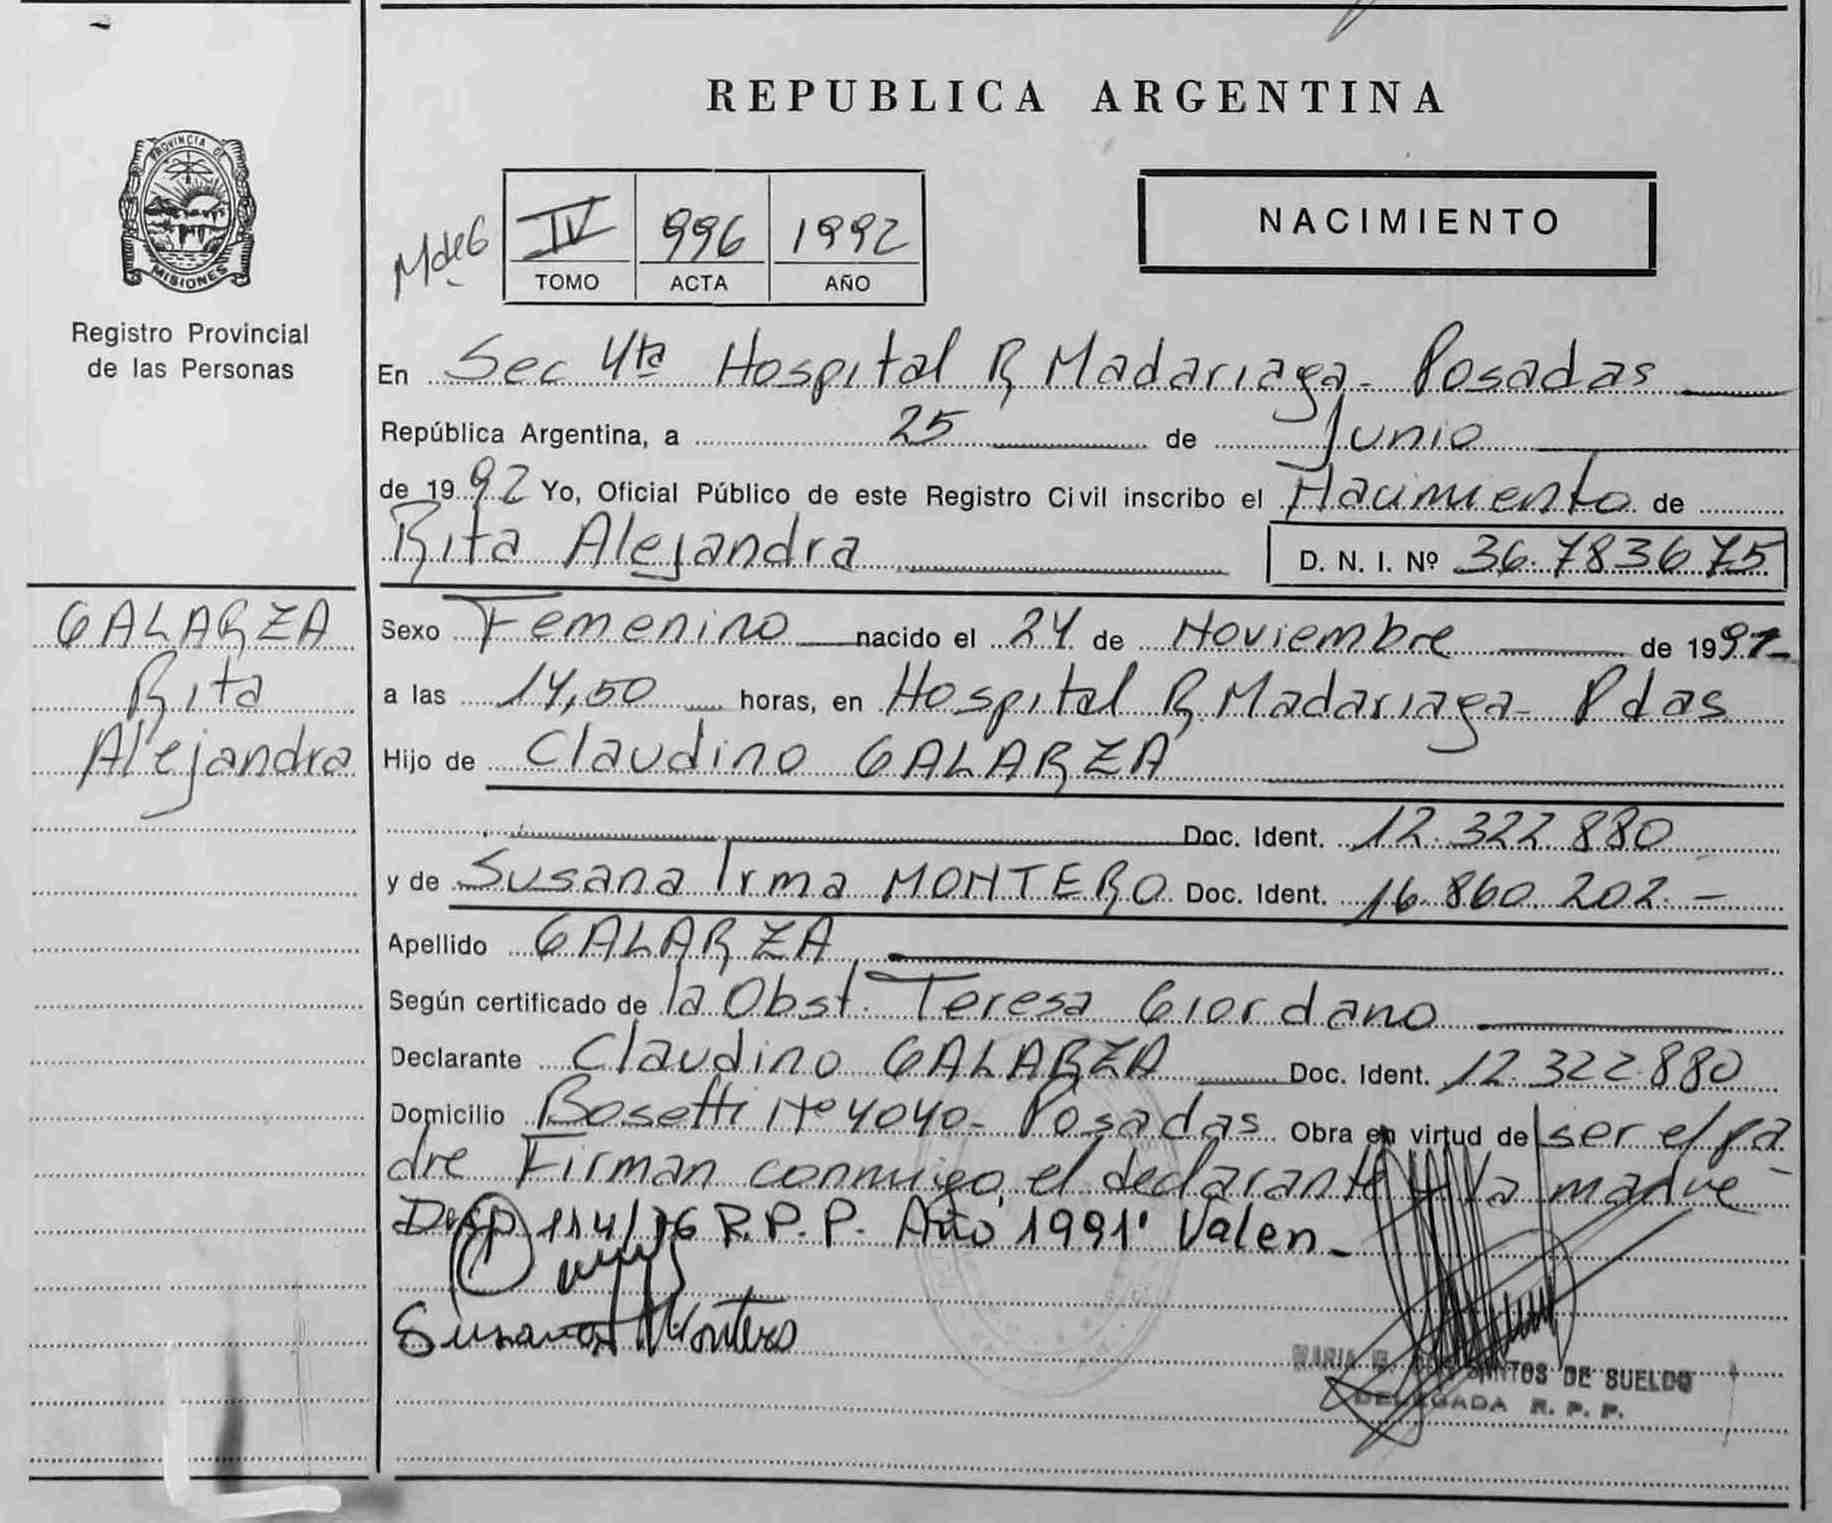 REPUBLICA ARGENTINA
PROVINCIA DE
MISIONES
Registro Provincial
de las Personas
MdeG
IV 996 1992
TOMO ACTA AÑO
NACIMIENTO
En Sec 4ta Hospital R Madariaga - Posadas
República Argentina, a 25 de Junio
de 1992 Yo, Oficial Público de este Registro Civil inscribo el Nacimiento de
Rita Alejandra D. N. I. Nº 36.783675
GALARZA
Rita
Alejandra
Sexo Femenino nacido el 24 de Noviembre de 1991
a las 14,50 horas, en Hospital R Madariaga - Pdas
Hijo de Claudino GALARZA
Doc. Ident. 12.322.880
y de Susana Irma MONTERO Doc. Ident. 16.860.202.-
Apellido GALARZA
Según certificado de la Obst. Teresa Giordano
Declarante Claudino GALARZA Doc. Ident. 12.322.880
Domicilio Bosetti Nº 4040 - Posadas Obra en virtud de ser el pa
dre Firman conmigo, el declarante y la madre
Disp 114/ R.P.P. Año 1991 Valen -
Susana Montero
MARIA SANTOS DE SUELDO
DELEGADA R. P. P.